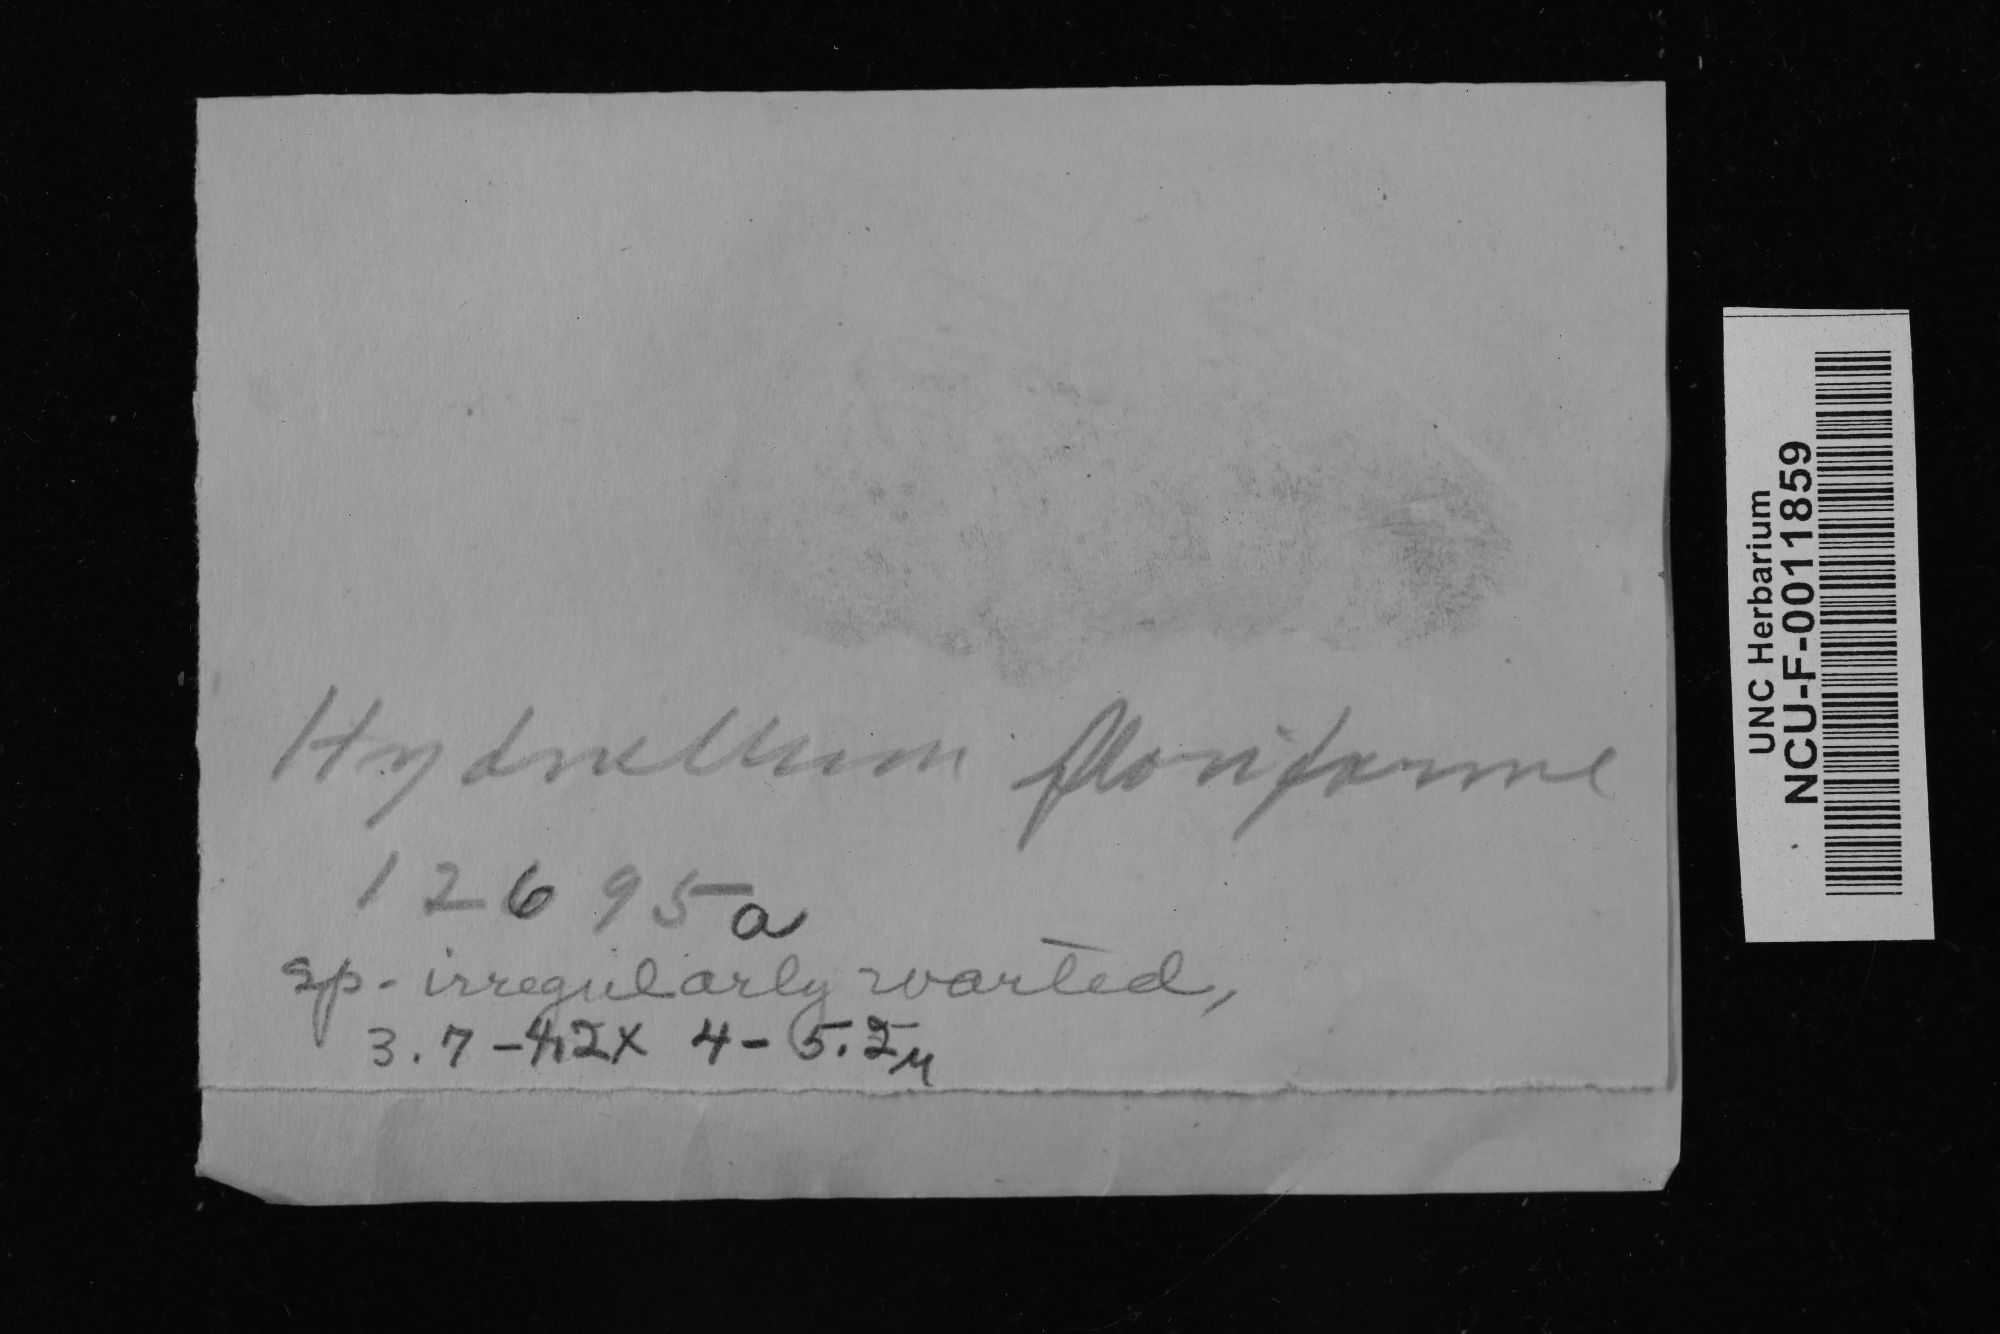 Hydnellum floriforme
12695a
sp. irregularly warted,
3.7-4.2x 4-5.5μ
UNC Herbarium
NCU-F-0011859